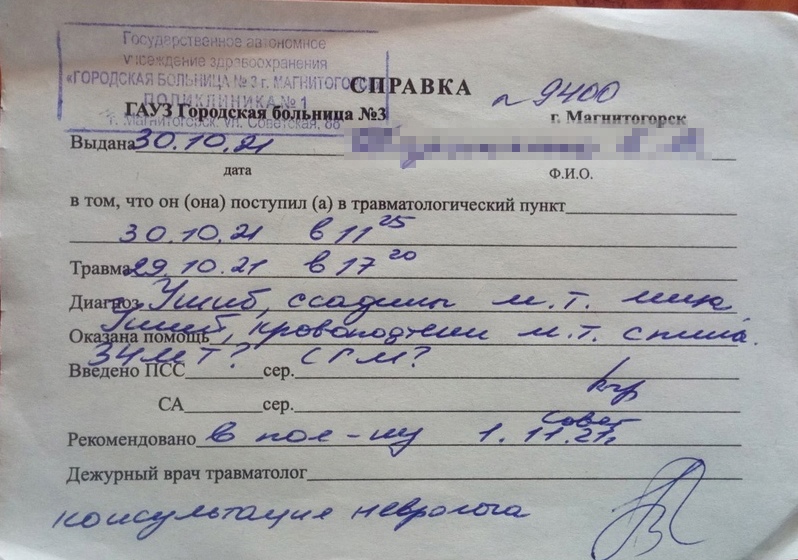 Государственное автономное
учреждение здравоохранения
«ГОРОДСКАЯ БОЛЬНИЦА № 3 г. МАГНИТОГО
ПОЛИКЛИНИКА № 1
г. Магнитогорск, ул. Советская, 88
СПРАВКА № 9400
ГАУЗ Городская больница №3 г. Магнитогорск
Выдана 30.10.21
дата Ф.И.О.
в том, что он (она) поступил (а) в травматологический пункт
30.10.21 в 11 25
Травма 29.10.21 в 17 20
Диагноз Ушиб, ссадины м.т.
Оказана помощь Ушиб, кровоподтеки м.т.
ЗЧМТ? СГМ?
Введено ПСС сер.
СА сер.
Рекомендовано в пол-ку 1.11.21г
Дежурный врач травматолог
консультация невролога